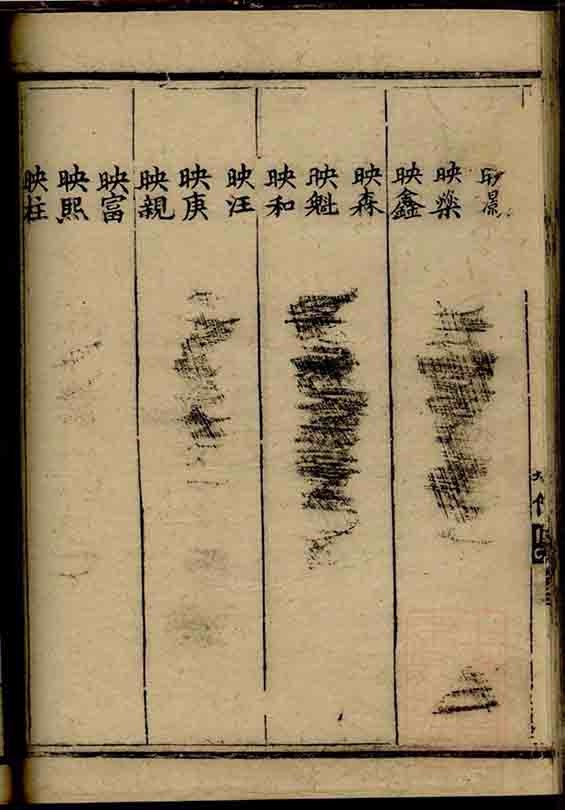 映景
映藥
映鑫
映森
映魁
映和
映汪
映庚
映親
映富
映熙
映柱